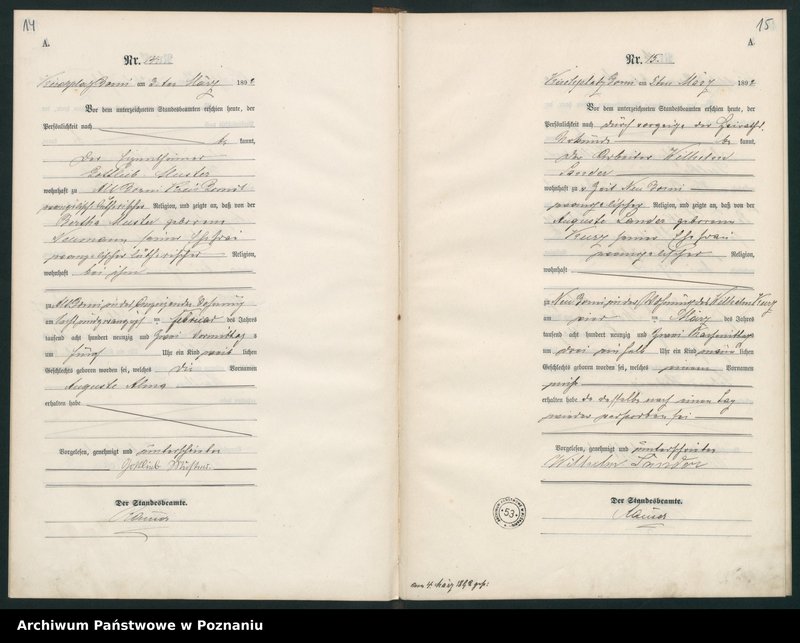 14
A.
Nr. 14.
am 3ten März 1892
Vor dem unterzeichneten Standesbeamten erschien heute, der
Persönlichkeit nach
kannt,
Der
Gottlieb Muster
wohnhaft zu Alt Borui Kreis Bomst
Religion, und zeigte an, daß von der
Bertha Muster geborene
Neumann seiner Ehefrau
evangelischer lutherischer Religion,
wohnhaft bei ihm
zu Alt Borui in des Wohnung
am Februar des Jahres
tausend acht hundert neunzig und zwei Vormittag s
um fünf Uhr ein Kind weib lichen
Geschlechts geboren worden sei, welches die Vornamen
Auguste Alma
erhalten habe
Vorgelesen, genehmigt und unterschrieben
Gottlieb
Der Standesbeamte.
15
A
Nr. 15.
Kirchplatz Borui am 5ten März 1892
Vor dem unterzeichneten Standesbeamten erschien heute, der
Persönlichkeit nach durch vorzeige der Heiraths
Urkunde kannt,
Der Arbeiter Wilhelm
Sander
wohnhaft zu z Zeit Neu Borui
evangelischer Religion, und zeigte an, daß von der
Auguste Sander geborene
Kurz seiner Ehefrau
evangelischer Religion,
wohnhaft
zu Neu Borui in des Wohnung des Wilhelm Kurz
am vier März des Jahres
tausend acht hundert neunzig und zwei Nachmittag s
um drei ein halb Uhr ein Kind männ lichen
Geschlechts geboren worden sei, welches einen Vornamen
nicht
erhalten habe da dasselbe nach einen Tag
wieder verstorben sei
Vorgelesen, genehmigt und unterschrieben
Wilhelm Sander
Der Standesbeamte.
53
4. März 1892
Archiwum Państwowe w Poznaniu